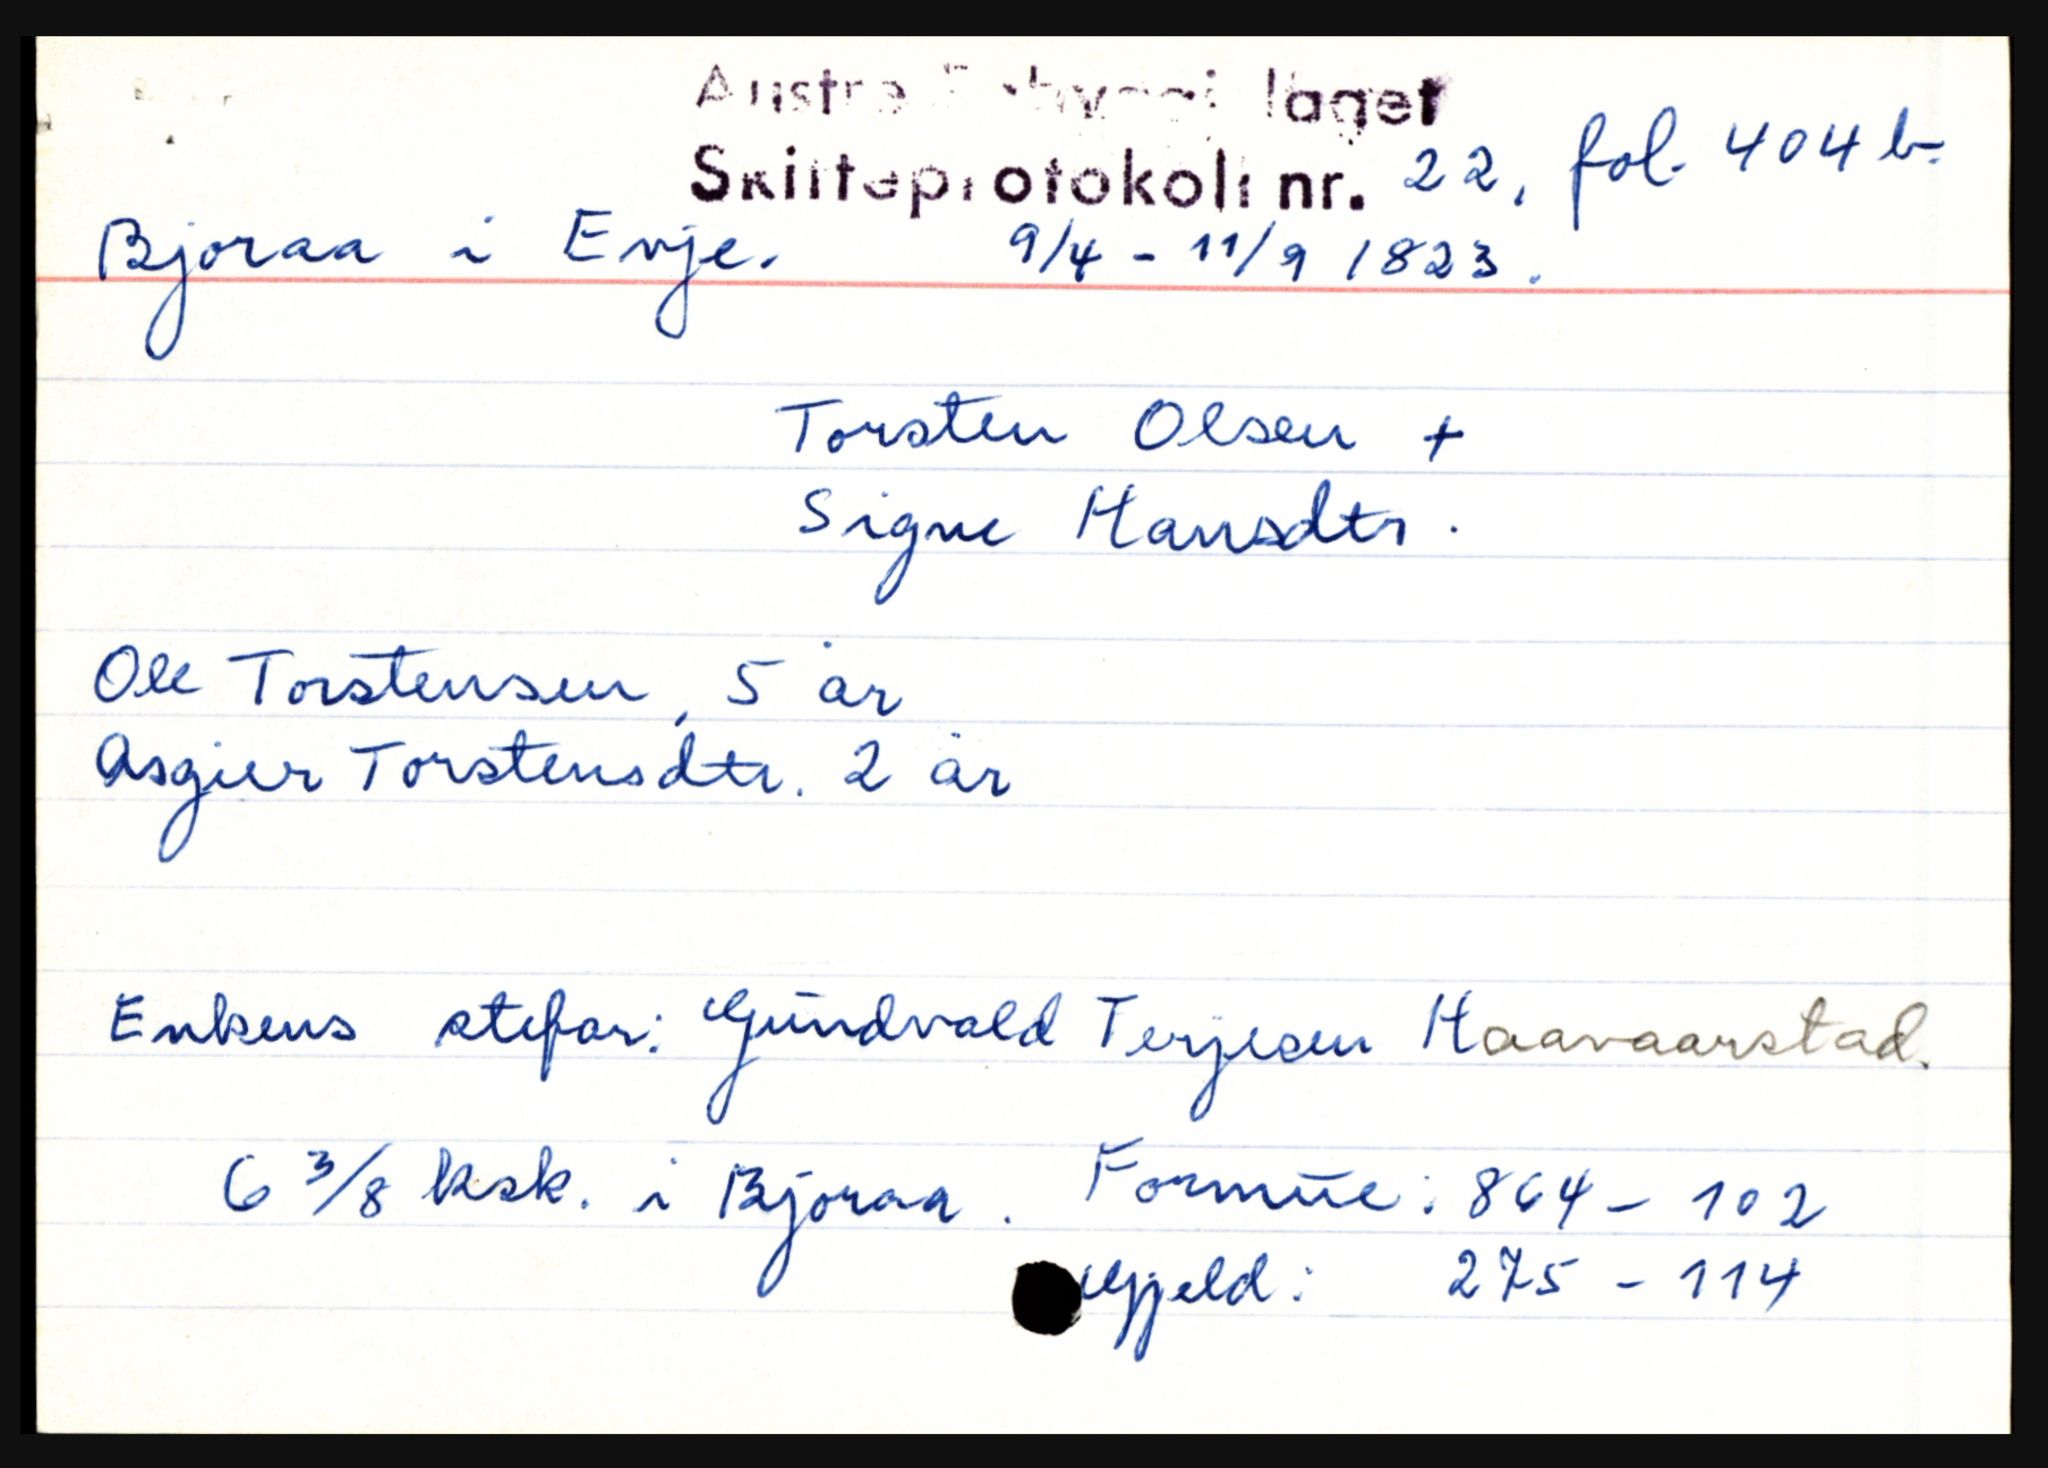 laget
Skifteprotokoll nr. 22, fol. 404 b.
Bjoraa i Evje. 9/4 - 11/9 1823.
Torsten Olsen +
Signe Hansdtr.
Ole Torstensen, 5 år
Asgier Torstensdtr. 2 år
Enkens stefar: Gundvald Terjesen Haavaarstad.
6 3/8 ksk. i Bjoraa. Formue: 864 - 102
Gjeld: 275 - 114